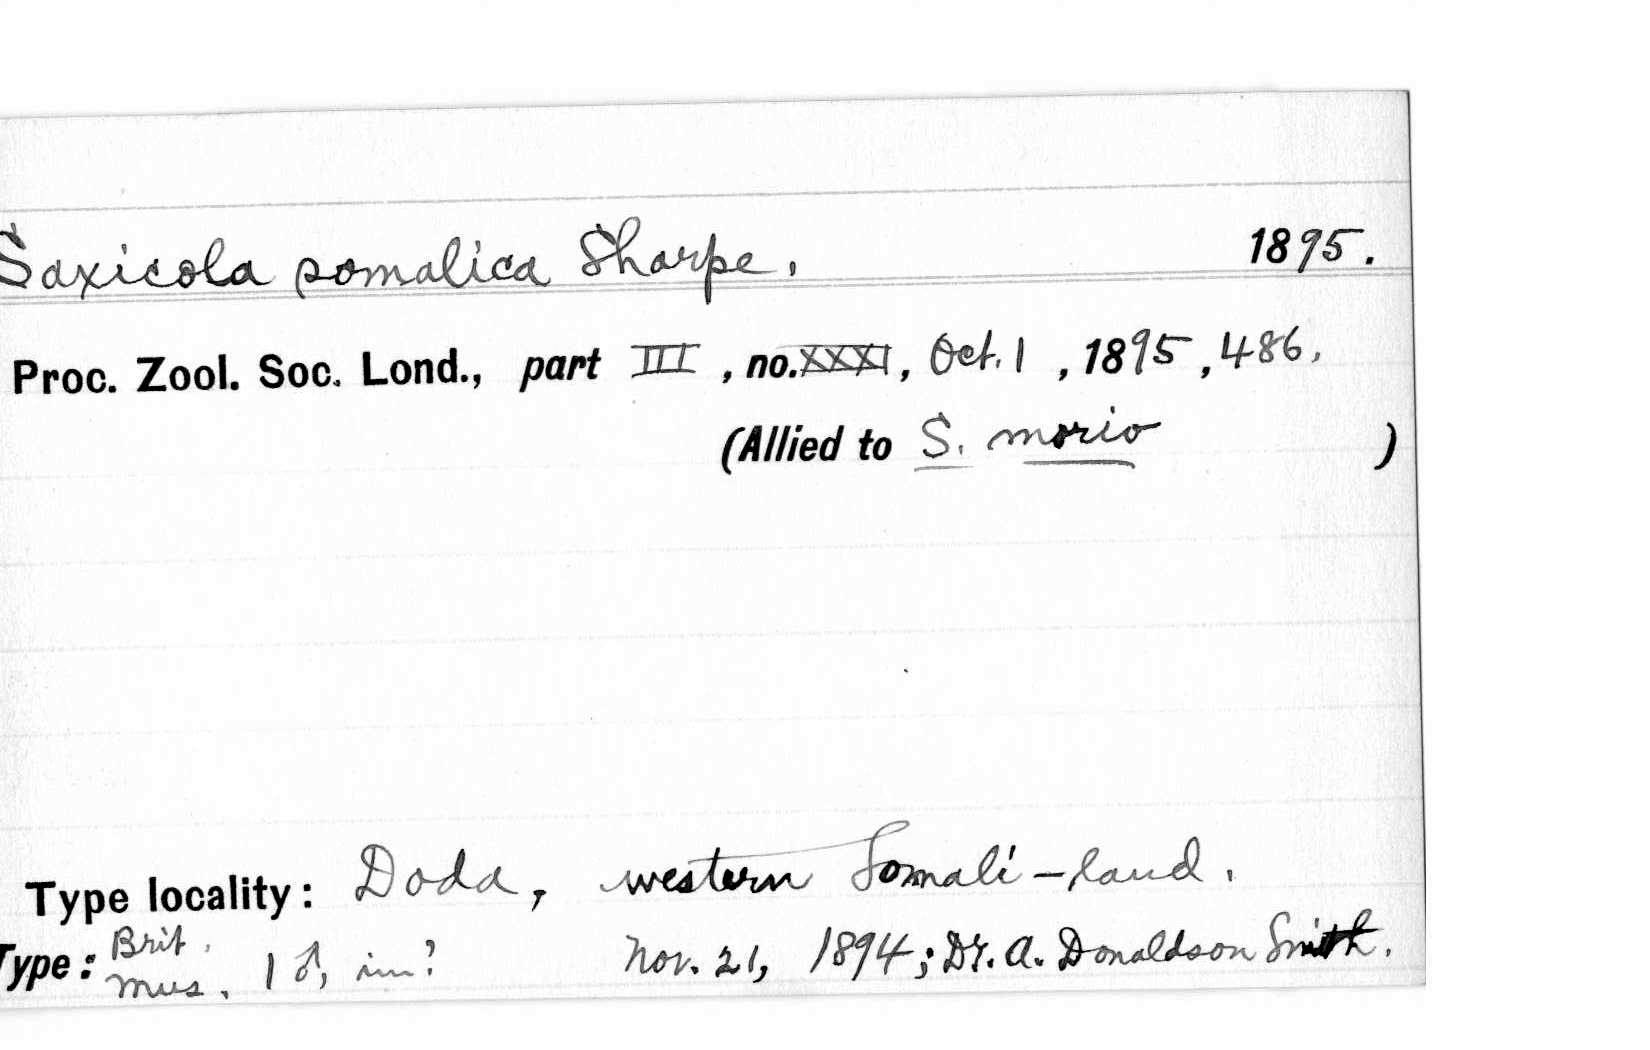 Saxicola somalica Sharpe, 1895.
Proc. Zool. Soc. Lond., part III, no. XXXI, Oct. 1, 1895, 486.
(Allied to S. morio )
Type locality: Doda, western Somali-land.
Type: Brit. Mus. 1 ♂, im? Nov. 21, 1894; Dr. A. Donaldson Smith.